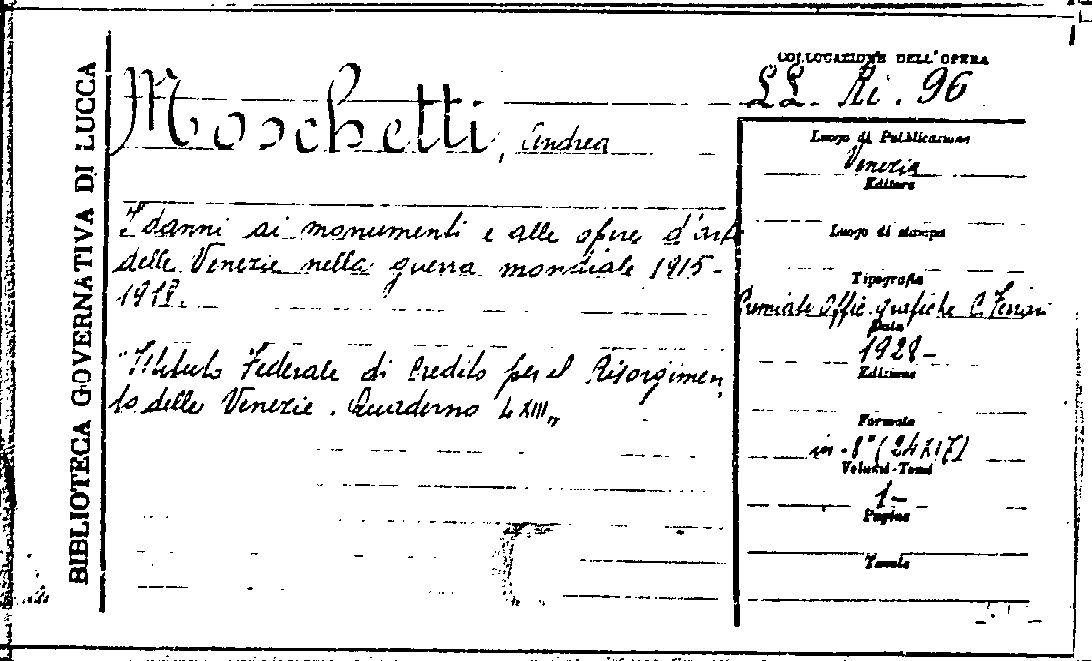 BIBLIOTECA GOVERNATIVA DI LUCCA
COLLOCAZIONE DELL'OPERA
LL. Ri. 96
Moschetti, Andrea
I danni ai monumenti e alle opere d'arte
delle Venezie nella guerra mondiale 1915-
1918.
"Istituto Federale di Credito per il Risorgimen
to delle Venezie. Quaderno LXIII"
Luogo di Pubblicazione
Venezia
Editore
Luogo di stampa
Tipografia
Premiate Offic. grafiche C. Ferrari
Data
1928-
Edizione
Formato
in-8° (24x17)
Volumi-Tomi
1-
Pagine
Tavole